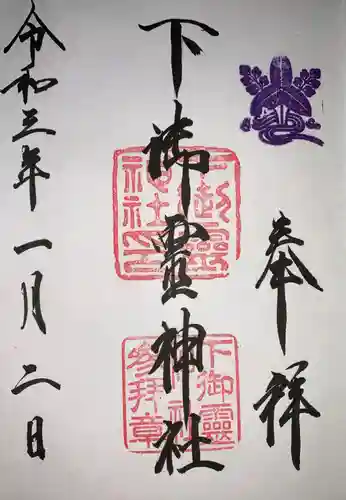 奉祥
下御靈神社
下御靈神社印
下御靈神社参拜章
令和三年一月二日